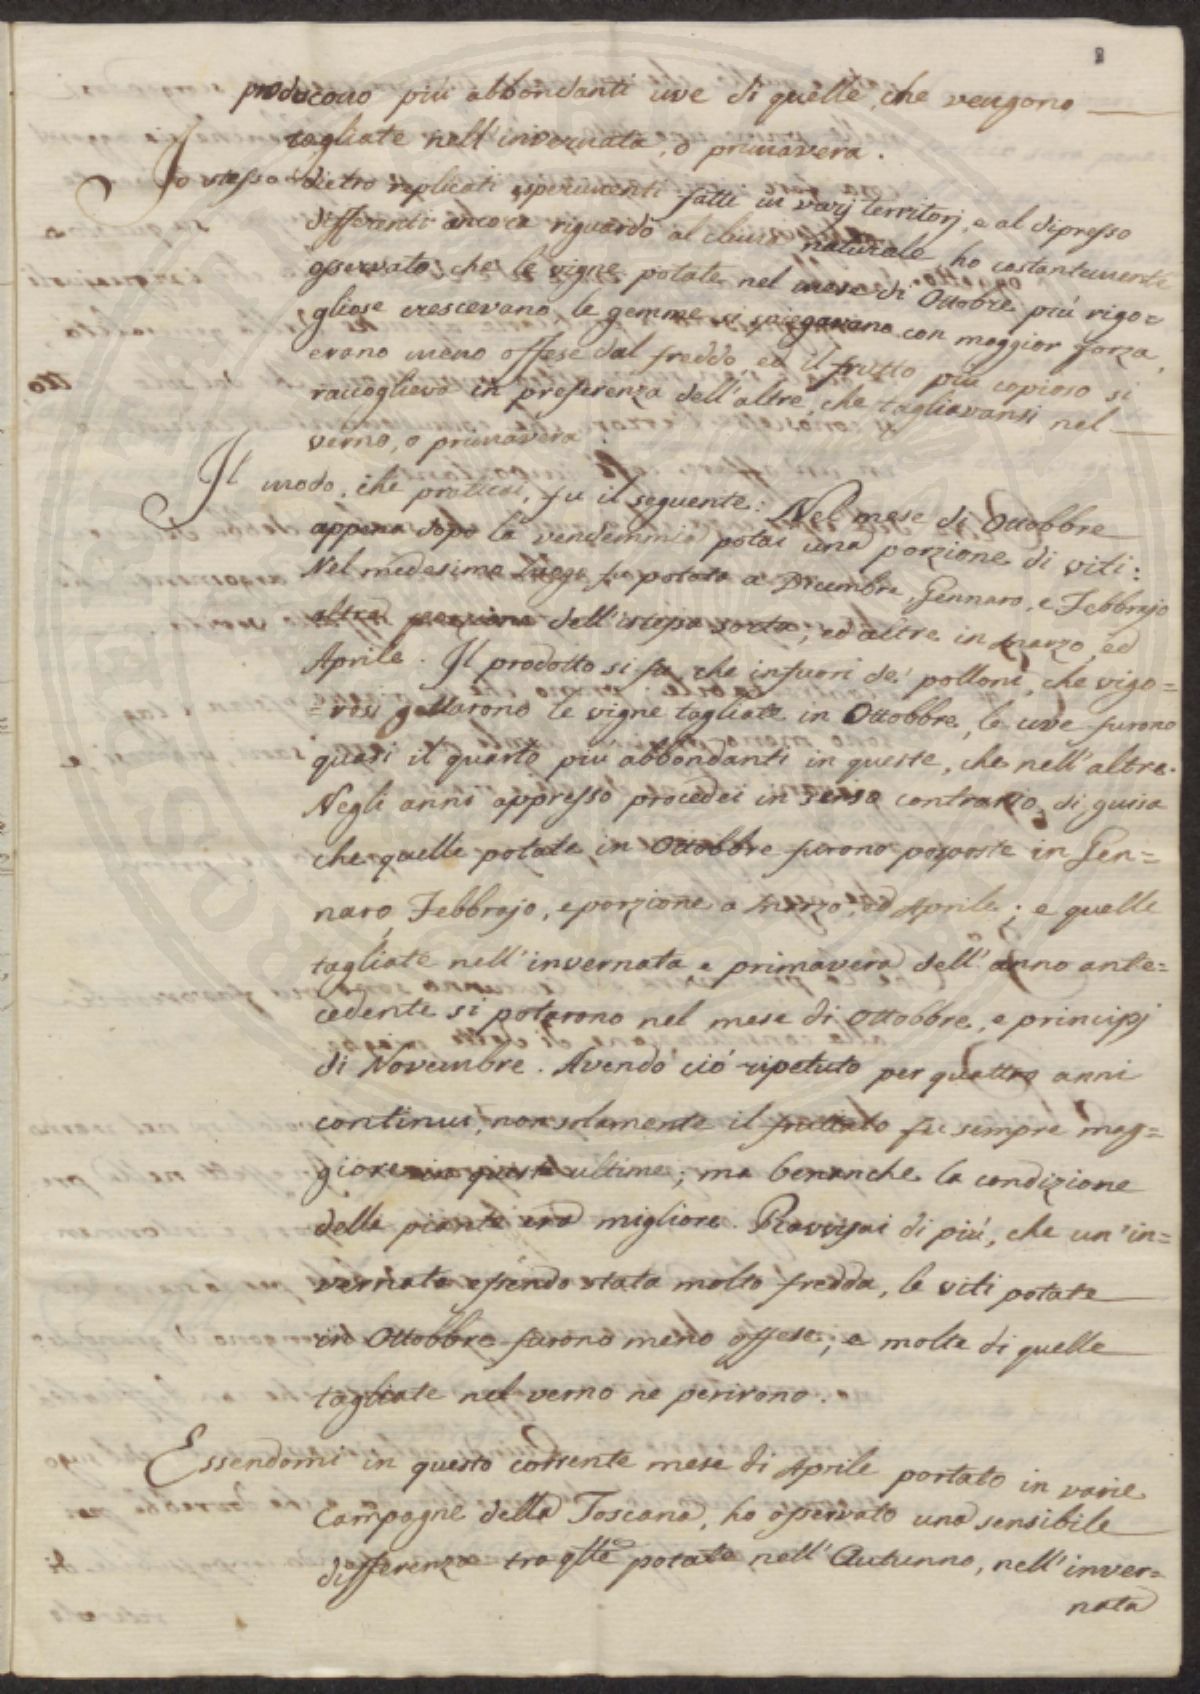 producono più abbondanti uve di quelle, che vengono
tagliate nell'invernata, o primavera.
Io stesso dietro replicati esperimenti fatti in varj territorj, e al dipresso
differenti ancora riguardo al clima naturale ho costantemente
osservato, che le vigne potate nel mese di Ottobre più rigo=
gliose crescevano, le gemme si spiegavano con maggior forza,
erano meno offese dal freddo, ed il frutto più copioso si
raccoglieva in preferenza dell'altre, che tagliavansi nel
verno, o primavera.
Il modo, che praticai, fu il seguente: Nel mese di Ottobbre
appena dopo la vendemmia potai una porzione di viti:
Nel medesimo luogo fu potata a Dicembre, Gennaro, e Febbrajo
altra porzione dell'istessa sorta; ed altre in Marzo, ed
Aprile. Il prodotto si fu, che infuori de' polloni, che vigo=
=rosi gettarono le vigne tagliate in Ottobbre, le uve furono
quasi il quarto più abbondanti in queste, che nell'altre.
Negli anni appresso procedei in senso contrario, di guisa
che quelle potate in Ottobbre furono posposte in Gen=
naro, Febbrajo, e porzione a Marzo, ed Aprile; e quelle
tagliate nell'invernata e primavera dell'anno ante=
cedente si potarono nel mese di Ottobbre, e principj
di Novembre. Avendo ciò ripetuto per quattro anni
continui, non solamente il fruttato fu sempre mag=
giore in queste ultime; ma benanche la condizione
delle piante era migliore. Ravvisai di più, che un'in=
vernata essendo stata molto fredda, le viti potate
in Ottobbre furono meno offese; e molte di quelle
tagliate nel verno ne perirono.
Essendomi in questo corrente mese di Aprile portato in varie
Campagne della Toscana, ho osservato una sensibile
differenza tra qlle potate nell'Autunno, nell'inver=
nata